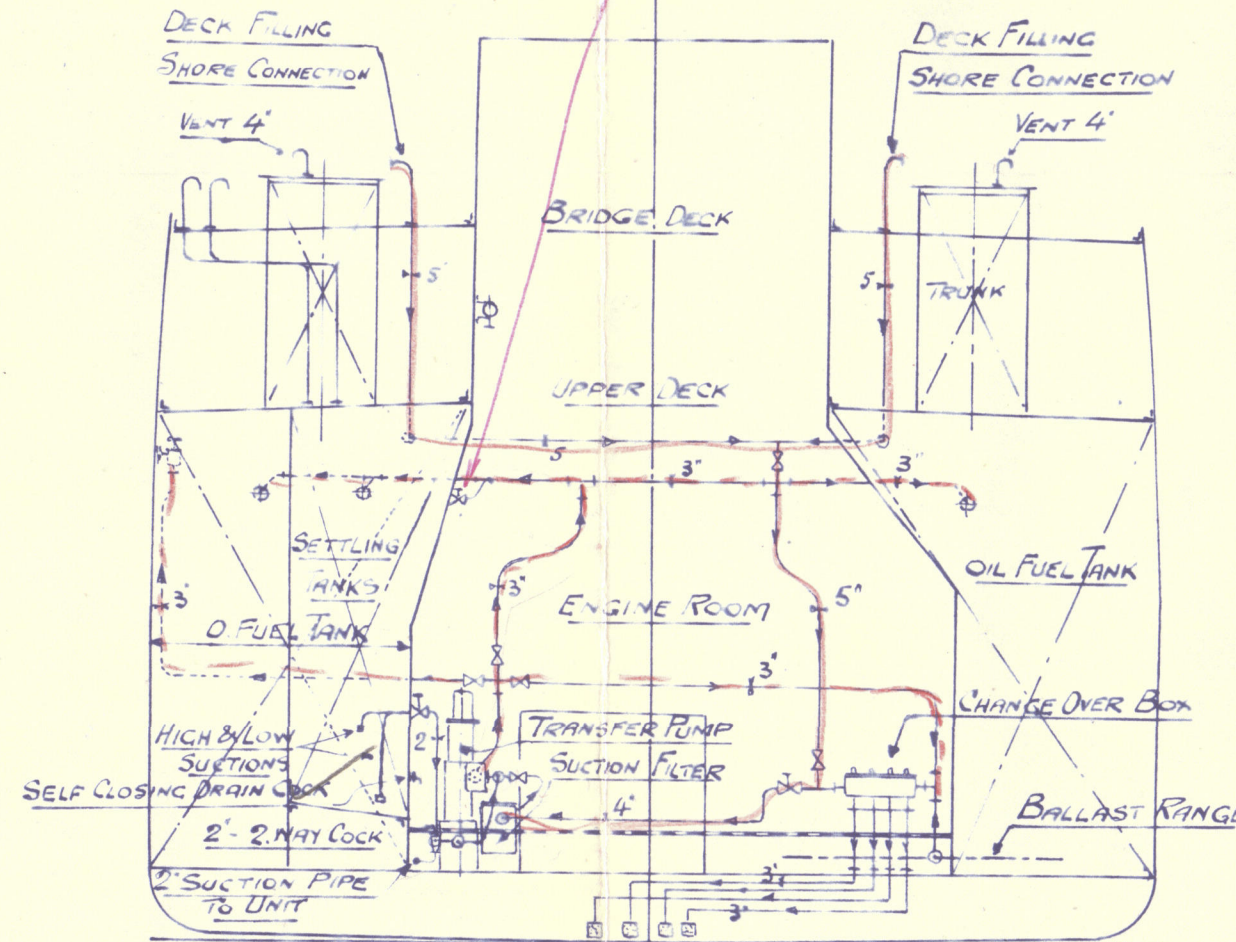 DECK FILLING
SHORE CONNECTION
VENT 4"
DECK FILLING
SHORE CONNECTION
VENT 4"
BRIDGE DECK
5"
5
TRUNK
UPPER DECK
5
3"
3"
SETTLING
TANKS
O. FUEL TANK
3"
3"
ENGINE ROOM
5"
OIL FUEL TANK
3"
CHANGE OVER BOX
HIGH & LOW
SUCTIONS
SELF CLOSING DRAIN COCK
2"- 2.WAY COCK
2" SUCTION PIPE
TO UNIT
2"
TRANSFER PUMP
SUCTION FILTER
4"
BALLAST RANGE
3"
3"